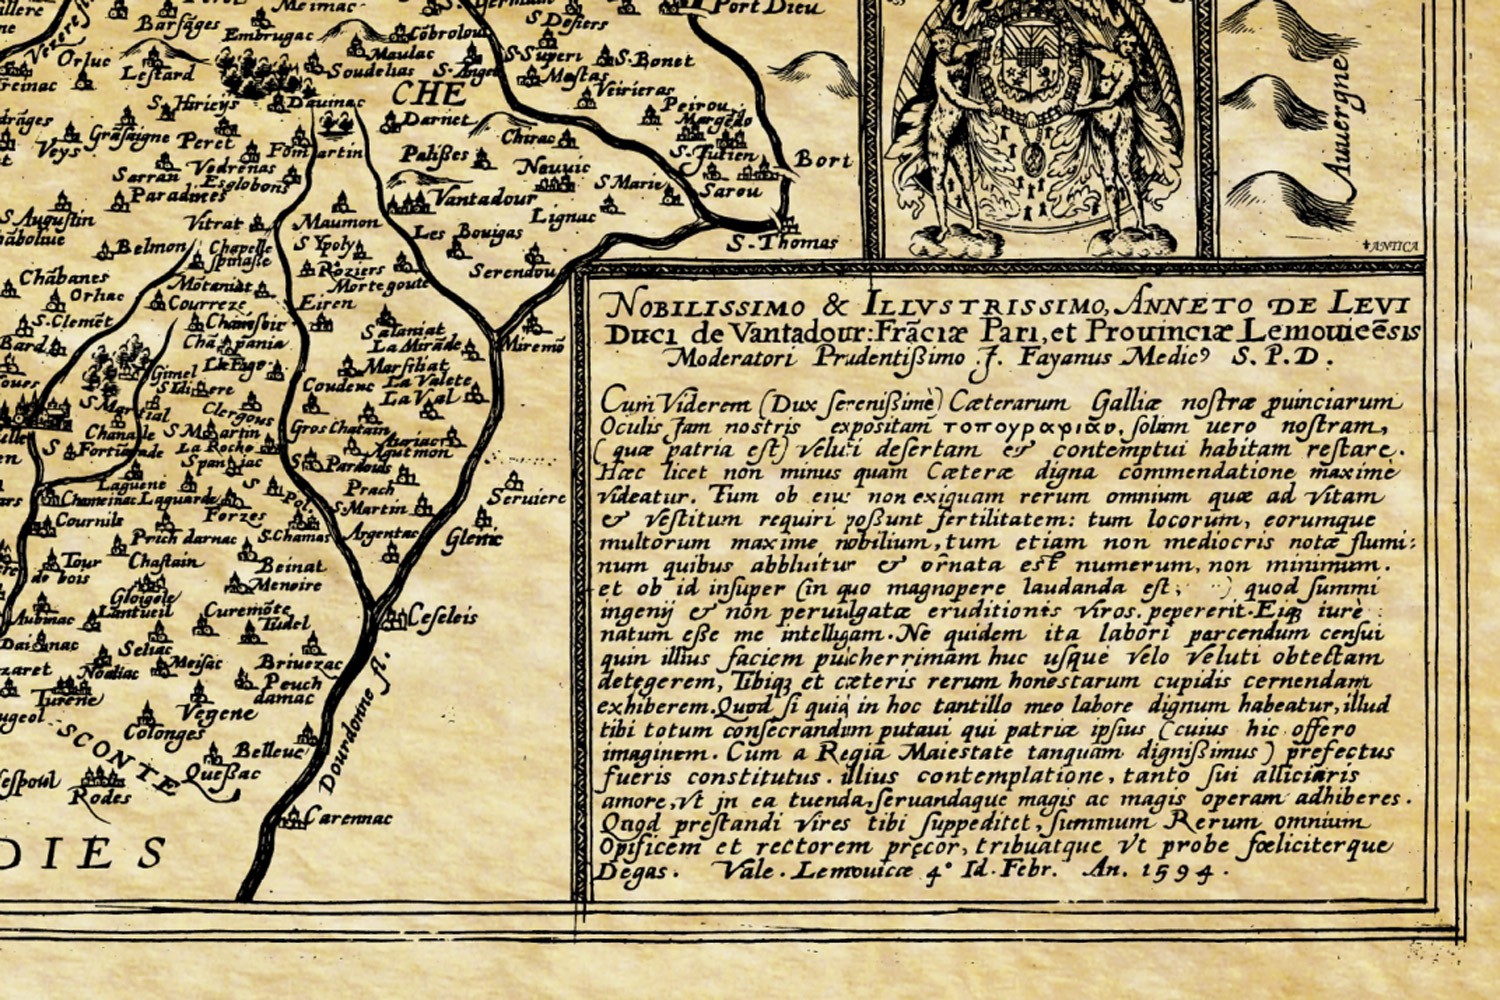 Meimac
Port Dieu
Barsãges
Embrugac
Cõbrolou
S. Dosiers
Orluc
Lestard
Maulac
Soudelias
S. Angel
S. Superi
S. Bonet
Mastas
Veirieras
S. Hirieys
Dauinac
CHE
Darnet
Peirou
Margêdo
Grãsaigne
Peret
Veys
Chirac
S. Julien
Bort
Vedrenas
Sarran
Esglobons
Paradines
Palißes
Neuuic
S. Marie
Sarou
Vantadour
Lignac
S. Augustin
Vitrat
Maumon
Les Bouigas
S. Thomas
Belmon
Chapelle
Spinasse
S Ypoly
Roziers
Mortegoute
Serendou
Chãbanes
Orhac
Motaniat
Courreze
Eiren
S. Clemẽt
Bard
Chãpania
Salaniat
La Mirãde
Miremõ
Gimel
Marfiliat
Coudenc
La Valete
La Val
Clergous
S Martin
La Roche
Gros Chatain
Chanale
Pardouls
Laguene
Chameinac
Laguarde
Prach
S. Martin
Seruiere
Cournile
Forzes
S. Chamas
Argentac
Glenic
Prich darnac
Chastain
Tour
de bois
Beinat
Menoire
Curemõte
Tudel
Ceseleis
Seliac
Meisac
Noaliac
Briuezac
Peuch
damac
Turene
Vegene
Colonges
SCONTE
Belleue
Queßac
Rodes
Dourdonne fl.
Carennac
DIES
Auuergne
ANTICA
NOBILISSIMO & ILLVSTRISSIMO, ANNETO DE LEVI
Duci de Vantadour: Frãciæ Pari, et Prouinciæ Lemouicẽsis
Moderatori Prudentißimo J. Fayanus Medicꝰ S. P. D.
Cum Viderem (Dux serenißimè) Cæterarum Galliæ nostræ ꝓuinciarum
Oculis Jam nostris expositam τοπογραφίαν, solam uero nostram,
(quæ patria est) veluti desertam & contemptui habitam restare.
Hæc licet non minus quam Cæteræ digna commendatione maximè
videatur. Tum ob eius non exiguam rerum omnium quæ ad vitam
& vestitum requiri poßunt fertilitatem: tum locorum, eorumque
multorum maximè nobilium, tum etiam non mediocris notæ flumi:
num quibus abbluitur & ornata est numerum, non minimum.
et ob id insuper (in quo magnopere laudanda est, ) quod summi
ingenij & non peruulgatæ eruditionis viros. pepererit. Eiqꝫ iure
natum eße me intelligam. Ne quidem ita labori parcendum censui
quin illius faciem pulcherrimam huc usque velo veluti obtectam
detegerem, Tibiqꝫ et cæteris rerum honestarum cupidis cernendam
exhiberem. Quod si quid in hoc tantillo meo labore dignum habeatur, illud
tibi totum consecrandum putaui qui patriæ ipsius (cuius hic offero
imaginem. Cum a Regia Maiestate tanquam dignißimus) prefectus
fueris constitutus. illius contemplatione, tanto sui alliciaris
amore, vt jn ea tuenda, seruandaque magis ac magis operam adhiberes.
Quod prestandi vires tibi suppeditet, summum Rerum omnium
Opificem et rectorem precor, tribuatque vt probe fœliciterque
Degas. Vale. Lemouicæ 4° Id. Febr. An. 1594.